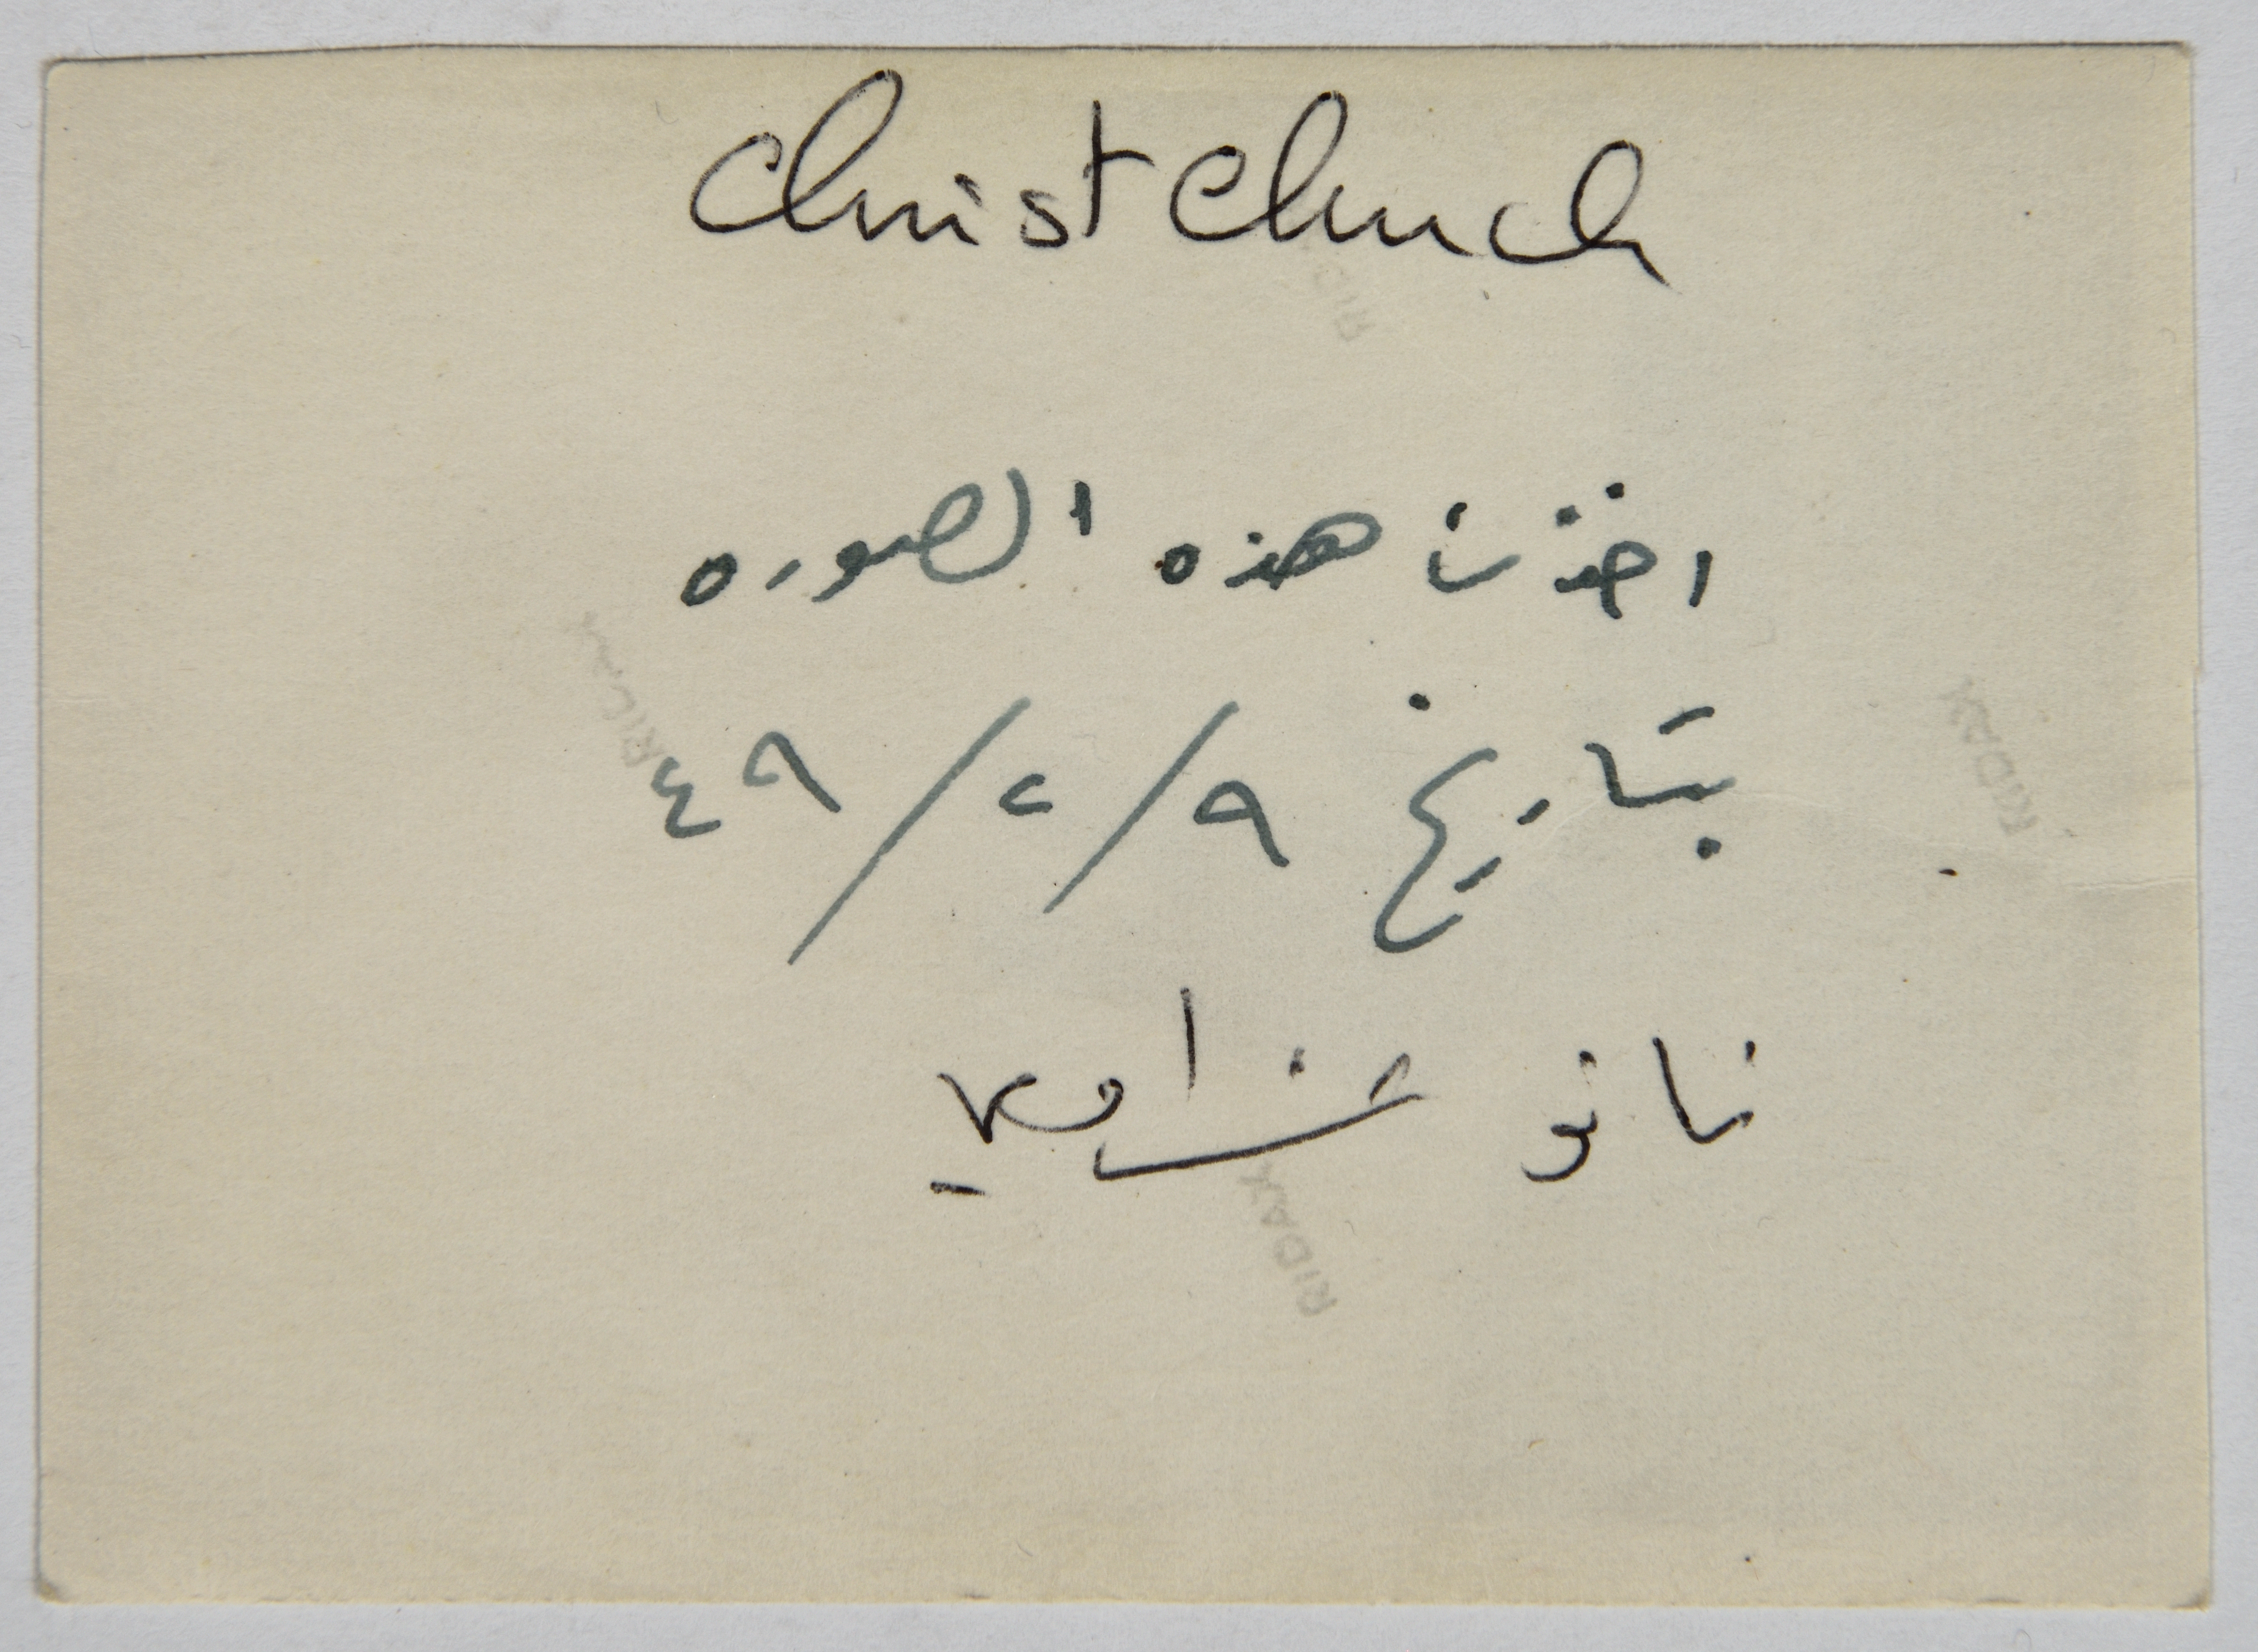 Christ Church
اخذت هذه الصوره
بتاريخ ٩/٢/٤٩
نانو
RIDAX
RIDAX
RIDAX